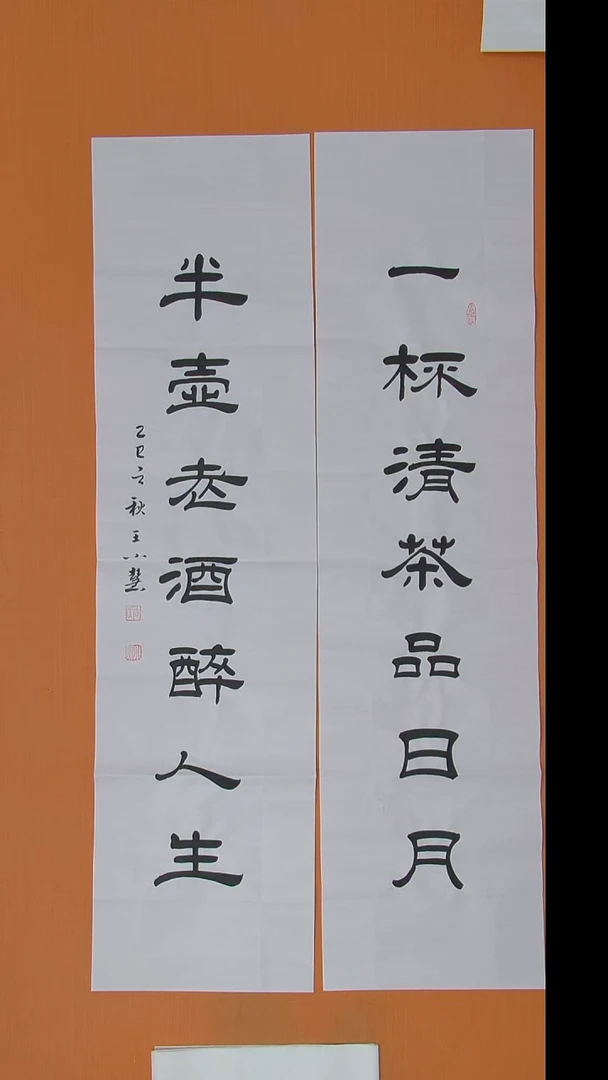 一杯清茶品日月
半壶老酒醉人生
乙巳立秋王小慧